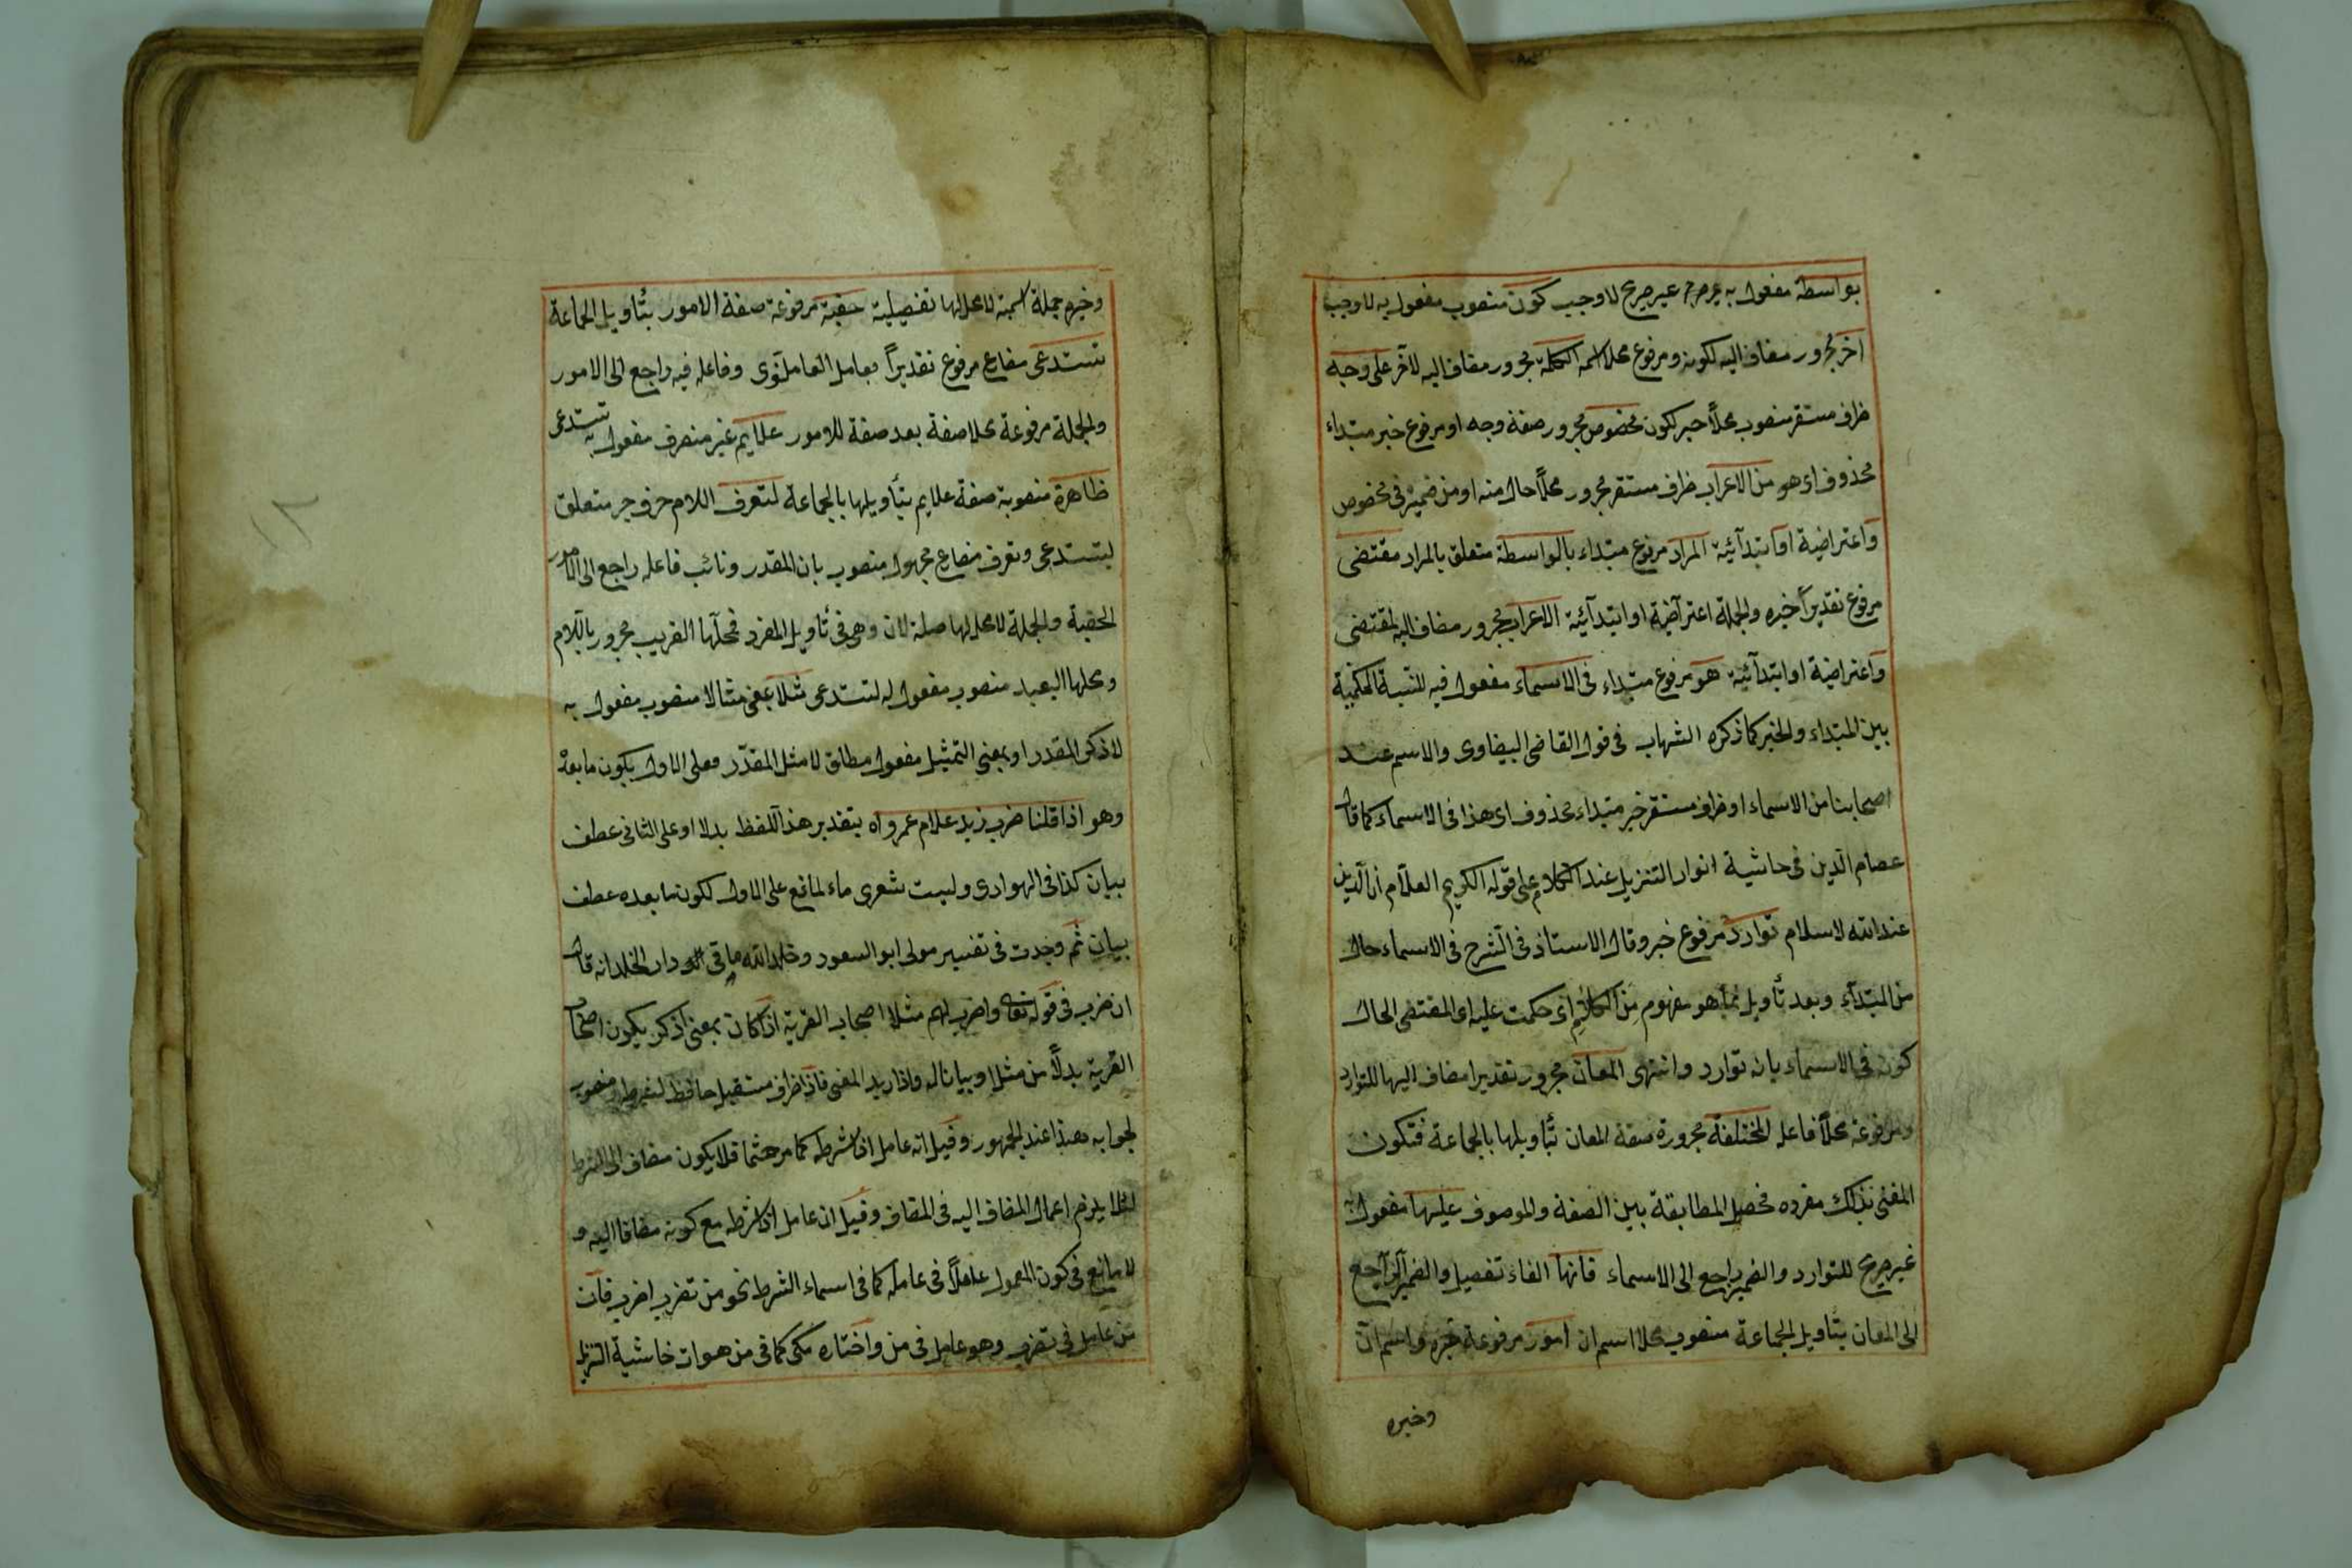 بواسطة مفعول به غير صريح لاوجب كون منصوب مفعول به لاوجب
آخر مجرور مضاف اليه لكون ومرفوع محلا اسمه الكلمة مجرور مضاف اليه لآخر على وجه
ظرف مستقر منصوب محلاً خبر لكون مخصوص مجرور صفة وجه او مرفوع خبر مبتداء
محذوف اى هو من الاعراب ظرف مستقر مجرور محلاً حال منه او من ضميره فى مخصوص
واعتراضية او ابتدآئية المراد مرفوع مبتداء بالواسطة متعلق بالمراد مقتضى
مرفوع تقديراً خبره والجملة اعتراضية او ابتدآئية الاعراب مجرور مضاف اليه لمقتضى
واعتراضية او ابتدآئية هو مرفوع مبتداء فى الاسماء مفعول فيه للنسبة الحكمية
بين المبتداء والخبر كما ذكره الشهاب فى قول القاضى البيضاوى والاسم عند
اصحابنا من الاسماء او ظرف مستقر خبر مبتداء محذوف اى هذا فى الاسماء كما قال
عصام الدين فى حاشية انوار التنزيل عند الكلام على قوله الكريم العلام ان الدين
عند الله لاسلام توارد مرفوع خبر وقال الاستاذ فى الشرح فى الاسماء حال
من المبتدآء وبعد تأويل بما هو مفهوم من الكلام اى حكمت عليه اى المقتضى الحال
كونه فى الاسماء بانه توارد وانتهى المعان مجرور تقديرا مضاف اليها للتوارد
ومرفوعة محلاً فاعله المختلفة مجرورة صفة المعان بتأويلها بالجماعة فتكون
المعنى بذلك مفرده فحصل المطابقة بين الصفة والموصوف عليها مفعول به
غير صريح للتوارد والضمير راجع الى الاسماء فانها الفاء تفصيل والضمير الراجع
الى المعان بتاويل الجماعة منصوب محلا اسم ان امور مرفوعة خبره واسم ان
وخبره
وخبره جملة اسمية لا محل لها تفصيلية حقية مرفوعة صفة الامور بتأويل الجماعة
تستدعى مضارع مرفوع تقديراً بعامل العامل نوى وفاعله فيه راجع الى الامور
والجملة مرفوعة محلا صفة بعد صفة للامور علايم غير منصرف مفعول به تستدعى
ظاهرة منصوبة صفة علايم بتأويلها بالجماعة لتعرف اللام حرف جر متعلق
لتستدعى وتعرف مضارع مجهول منصوب بان المقدر ونائب فاعله راجع الى الامور
الحقية والجملة لا محل لها صلة لان وهى فى تأويل المفرد فمحلها القريب مجرور باللام
ومحلها البعيد منصوب مفعول له لتستدعى مثلا بمعنى مثالا منصوب مفعول به
لاذكر المقدر او بمعنى التمثيل مفعول مطلق لامثل المقدّر فعلى الاول يكون ما بعده
وهو اذا قلنا ضرب زيد غلام عمرو اه بتقدير هذا اللفظ بدلا او على الثانى عطف
بيان كذا فى الهوادى وليت شعرى ماء لمانع على الاول لكون ما بعده عطف
بيان ثم وجدت فى تفسير مولى ابو السعود دار الخلد انه قال
ان ضرب فى قوله تعالى واضرب لهم مثلا اصحاب القرية اذا كان بمعنى اذكر يكون اصحاب
القرية بدلاً من مثلا وبيانا له واذا ريد المعنى فاذا ظرف مستقبل حافظ لشرطه منصوب
لجوابه هذا عند الجمهور وقيل انه عامل اذا شرطه كما مر حثما فلا يكون مضاف الى الشرط
لئلا يلزم اعمال المضاف اليه فى المضاف وقيل ان عامل اذا شرطه مع كونه مضافا اليه و
لا مانع فى كون المعمول عاملاً فى عامله كما فى اسماء الشرط نحو من تضرب اضرب فان
من عامل فى تضرب وهو عامل فى من واختاره مكى كما فى من هوات حاشية التنزيل